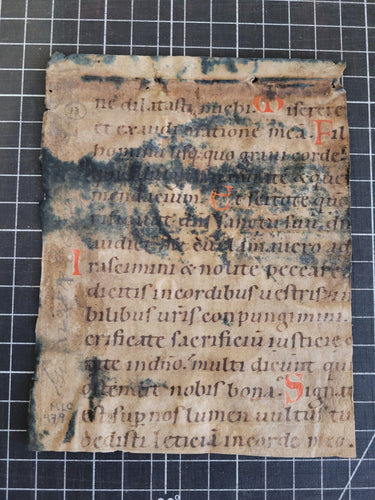 ne dilatasti michi. Miserere
et exaudi oratione mea. Fil
hominu usq; quo gravi corde.
vanitate & que
mendacium. Et scitote quo
dns sanctu suu. dn
audiet me cu clamavero ad
Irascimini & nolite peccare
dicitis in cordibus vestris in
bilibus vris conpungimini.
crificate sacrificiu iusticie
rate in dno. multi dicunt qui
ostendit nobis bona. Signatu
est sup nos lumen vultus tu
dedisti leticiu in corde meo.